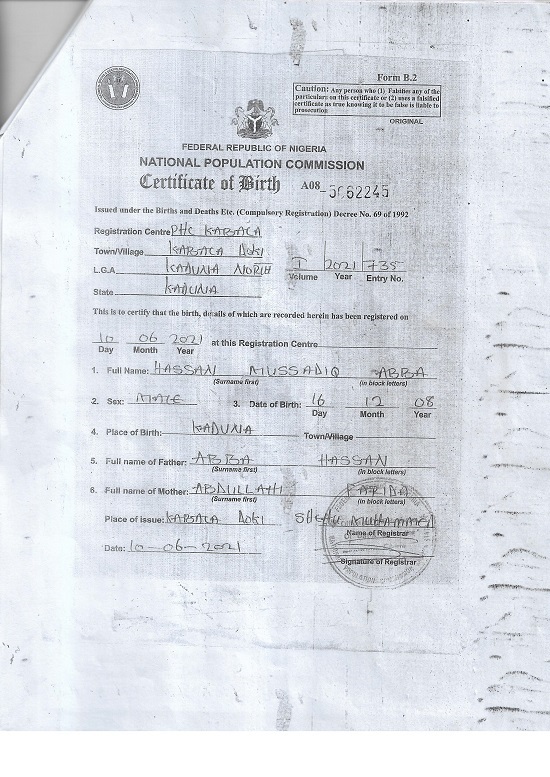 Form B.2
Caution: Any person who (1) Falsifies any of the
particulars on this certificate or (2) uses a falsified
certificate as true knowing it to be false is liable to
prosecution
ORIGINAL
FEDERAL REPUBLIC OF NIGERIA
NATIONAL POPULATION COMMISSION
Certificate of Birth A08 -5662245
Issued under the Births and Deaths Etc. (Compulsory Registration) Decree No. 69 of 1992
Registration Centre PHC KABALA
Town/Village KABALA DOKI
L.G.A KADUNA NORTH I 2021 735
Volume Year Entry No.
State KADUNA
This is to certify that the birth, details of which are recorded herein has been registered on
10 06 2021 at this Registration Centre
Day Month Year
1. Full Name: HASSAN MUSSADIQ ABBA
(Surname first) (in block letters)
2. Sex: MALE 3. Date of Birth: 16 12 08
Day Month Year
4. Place of Birth: KADUNA Town/Village
5. Full name of Father: ABBA HASSAN
(Surname first) (in block letters)
6. Full name of Mother: ABDULLAHI FARIDA
(Surname first) (in block letters)
Place of issue: KABALA DOKI SHEHU MUHAMMED
Name of Registrar
Date: 10-06-2021
Signature of Registrar